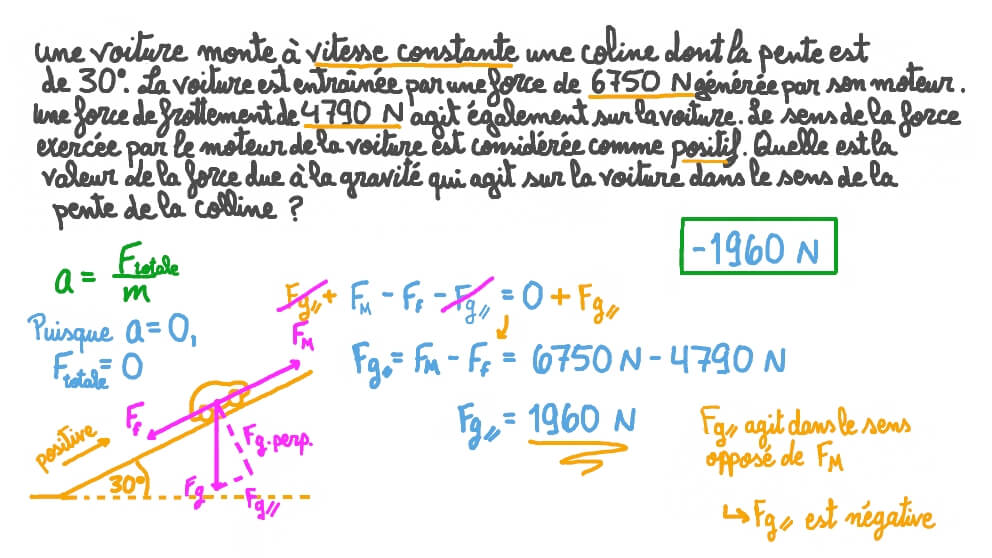 une voiture monte à vitesse constante une coline dont la pente est
de 30°. La voiture est entraînée par une force de 6750 N générée par son moteur.
Une force de frottement de 4790 N agit également sur la voiture. Le sens de la force
exercée par le moteur de la voiture est considérée comme positif. Quelle est la
valeur de la force due à la gravité qui agit sur la voiture dans le sens de la
pente de la colline ?
-1960 N
a = F_totale / m
Puisque a = 0,
F_totale = 0
F_g// + F_M - F_f - F_g// = 0 + F_g//
F_g// = F_M - F_f = 6750 N - 4790 N
F_g// = 1960 N
F_M
F_f
positive
30°
F_g
F_g.perp.
F_g//
F_g// agit dans le sens
opposé de F_M
↳ F_g// est négative